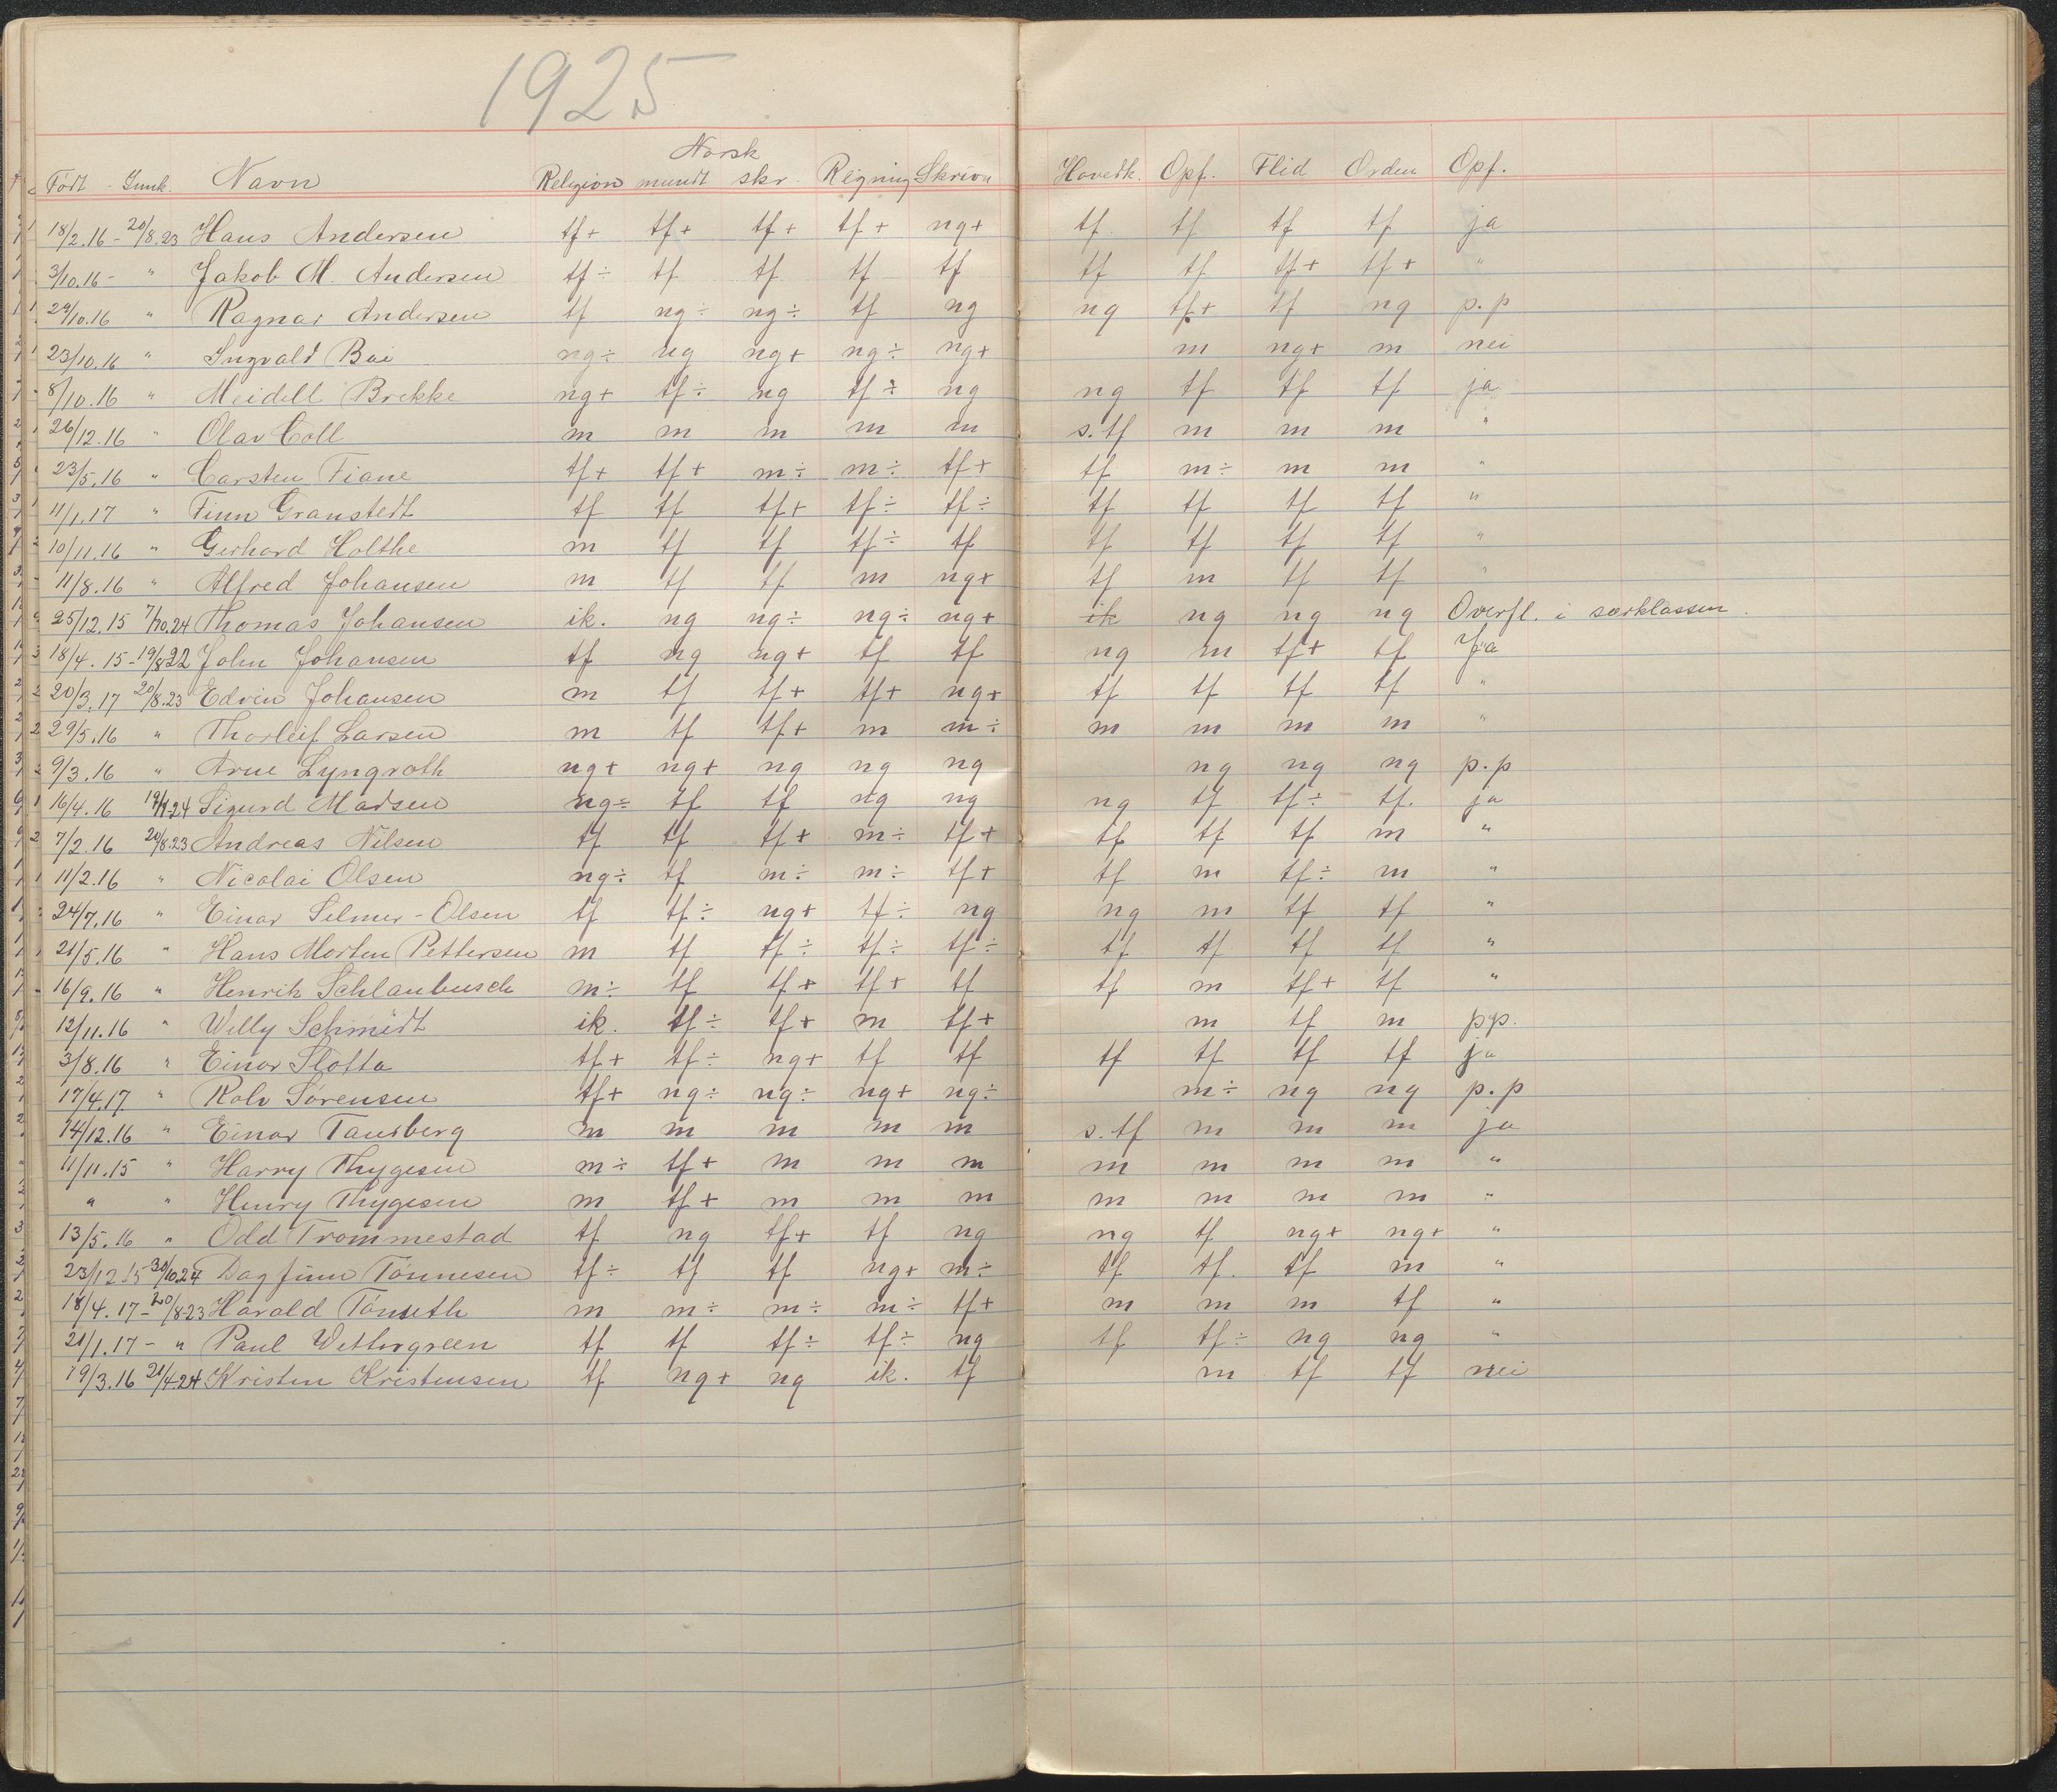 1925
Norsk
Født Innk. Navn Religion mundt skr. Regning Skrivn Hovedk. Opf. Flid Orden Opf.
18/2.16 - 20/8.23 Hans Andersen tf+ tf+ tf+ tf+ ng+ tf tf tf tf ja
3/10.16 - " Jakob M. Andersen tf÷ tf tf tf tf tf tf tf+ tf+ "
29/10.16 " Ragnar Andersen tf ng÷ ng÷ tf ng ng tf+ tf ng p.p
23/10.16 " Ingvald Boi ng÷ ng ng+ ng÷ ng+ m ng+ m nei
8/10.16 " Meidell Brekke ng+ tf÷ ng tf÷ ng ng tf tf tf ja
26/12.16 " Olav Coll m m m m m s.tf m m m "
23/5.16 " Carsten Fiane tf+ tf+ m÷ m÷ tf+ tf m÷ m m "
11/1.17 " Finn Granstedt tf tf tf+ tf÷ tf÷ tf tf tf tf "
10/11.16 " Gerhard Holthe m tf tf tf÷ tf tf tf tf tf "
11/8.16 " Alfred Johansen m tf tf m ng+ tf m tf tf "
25/12.15 7/10.24 Thomas Johansen ik. ng ng÷ ng÷ ng+ ik ng ng ng Overfl. i særklassen.
18/4.15 - 19/8.22 John Johansen tf ng ng+ tf tf ng m tf+ tf Ja
20/3.17 20/8.23 Edvin Johansen m tf tf+ tf+ ng+ tf tf tf tf "
29/5.16 " Thorleif Larsen m tf tf+ m m÷ m m m m "
9/3.16 " Arne Lyngroth ng+ ng+ ng ng ng ng ng ng p.p
16/4.16 Sigurd Madsen ng÷ tf tf ng ng ng tf tf÷ tf. ja
7/2.16 20/8.23 Andreas Nilsen tf tf tf+ m÷ tf+ tf tf tf m "
11/2.16 " Nicolai Olsen ng÷ tf m÷ m÷ tf+ tf m tf÷ m "
24/7.16 " Einar Selmer-Olsen tf tf÷ ng+ tf÷ ng ng m tf tf "
21/5.16 " Hans Morten Pettersen m tf tf÷ tf÷ tf÷ tf tf tf tf "
16/9.16 " Henrik Schlanbusch m÷ tf tf+ tf+ tf tf m tf+ tf "
12/11.16 " Willy Schmidt ik. tf÷ tf+ m tf+ m tf m pp.
3/8.16 " Einar Slotta tf+ tf÷ ng+ tf tf tf tf tf tf ja
17/4.17 " Rolv Sørensen tf+ ng÷ ng÷ ng+ ng÷ m÷ ng ng p.p
14/12.16 " Einar Tansberg m m m m m s.tf m m m ja
11/11.15 " Harry Thygesen m÷ tf+ m m m m m m m "
" " Henry Thygesen m tf+ m m m m m m m "
13/5.16 " Odd Trommestad tf ng tf+ tf ng ng tf ng+ ng+ "
23/12.15 30/10.24 Dagfinn Tønnesen tf÷ tf tf ng+ m÷ tf tf. tf m "
18/4.17 - 20/8.23 Harald Tønseth m m÷ m÷ m÷ tf+ m m m tf "
21/1.17 - " Paul Wettergreen tf tf tf÷ tf÷ ng tf tf÷ ng ng "
19/3.16 21/4.24 Kristen Kristensen tf ng+ ng ik. tf m tf tf nei